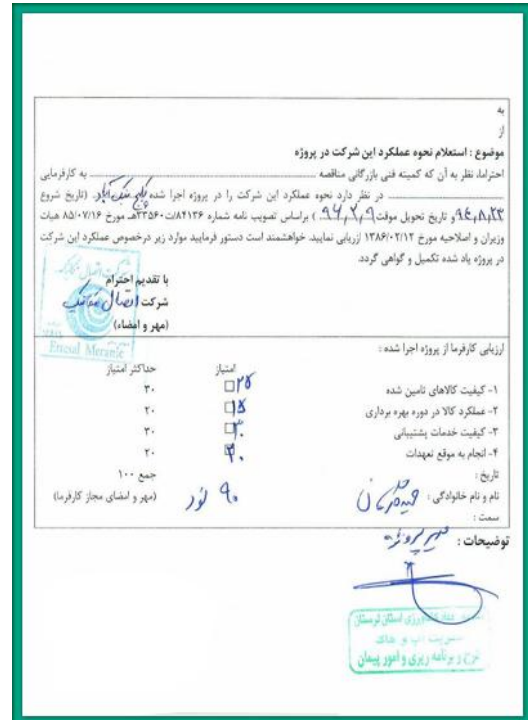 به
از
موضوع : استعلام نحوه عملکرد این شرکت در پروژه
احتراما، نظر به آن که کمیته فنی بازرگانی مناقصه ........ به کارفرمایی
........ در نظر دارد نحوه عملکرد این شرکت را در پروژه اجرا شده (تاریخ شروع
۹۴,۸,۲۳ و تاریخ تحویل موقت ۹۶,۲,۹) براساس تصویب نامه شماره ۸۴۱۳۶/ت۳۳۵۶۰هـ مورخ ۸۵/۰۷/۱۶ هیات
وزیران و اصلاحیه مورخ ۱۳۸۶/۰۲/۱۲ ارزیابی نمایید. خواهشمند است دستور فرمایید موارد زیر درخصوص عملکرد این شرکت
در پروژه یاد شده تکمیل و گواهی گردد.
با تقدیم احترام
شرکت اتصال مکانیک
(مهر و امضاء)
ارزیابی کارفرما از پروژه اجرا شده :
امتیاز حداکثر امتیاز
۱- کیفیت کالاهای تامین شده ۲۵ ۳۰
۲- عملکرد کالا در دوره بهره برداری ۱۵ ۲۰
۳- کیفیت خدمات پشتیبانی ۳۰ ۳۰
۴- انجام به موقع تعهدات ۲۰ ۲۰
تاریخ : جمع ۱۰۰
نام و نام خانوادگی : ۹۰ نود (مهر و امضای مجاز کارفرما)
سمت :
توضیحات : مدیر پروژه
جهاد کشاورزی استان لرستان
مدیریت آب و خاک
طرح و برنامه ریزی و امور پیمان